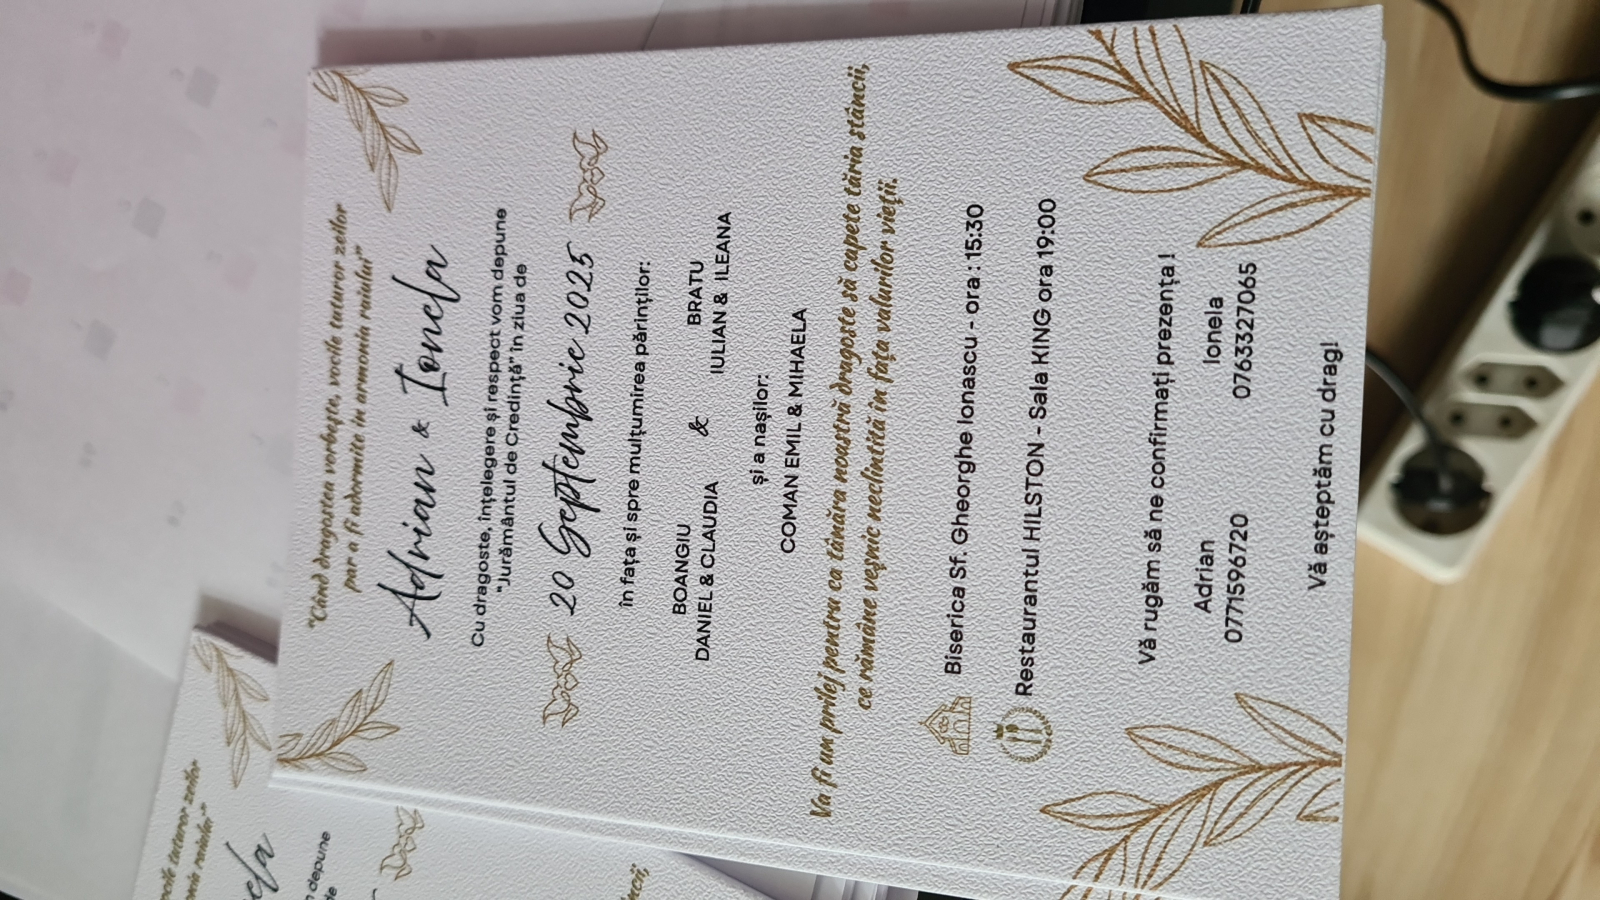 "Când dragostea vorbește, vocile tuturor zeilor
par a fi adormite în armonia raiului"
Adrian & Ionela
Cu dragoste, înțelegere și respect vom depune
"Jurământul de Credință" în ziua de
20 Septembrie 2025
în fața și spre mulțumirea părinților:
BOANGIU & BRATU
DANIEL & CLAUDIA IULIAN & ILEANA
și a nașilor:
COMAN EMIL & MIHAELA
Va fi un prilej pentru ca tânăra noastră dragoste să capete tăria stâncii,
ce rămâne veșnic neclintită în fața valurilor vieții.
Biserica Sf. Gheorghe Ionascu - ora : 15:30
Restaurantul HILSTON - Sala KING ora 19:00
Vă rugăm să ne confirmați prezența !
Adrian Ionela
0771596720 0763327065
Vă așteptăm cu drag!
vocile tuturor zeilor
raiului"
depune